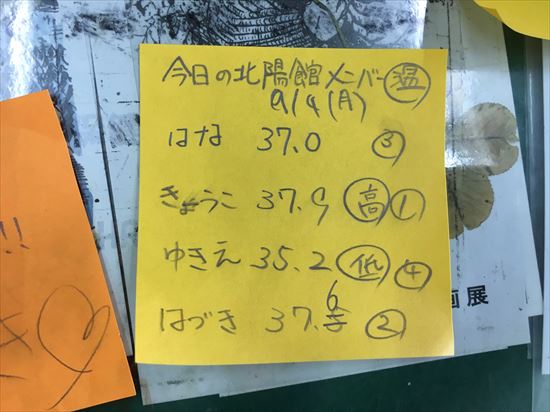 今日の北陽館メンバー温
9/4(月)
はな 37.0 ③
きょうこ 37.9 高 ①
ゆきえ 35.2 低 ④
はづき 37.6 ②
画展
!!